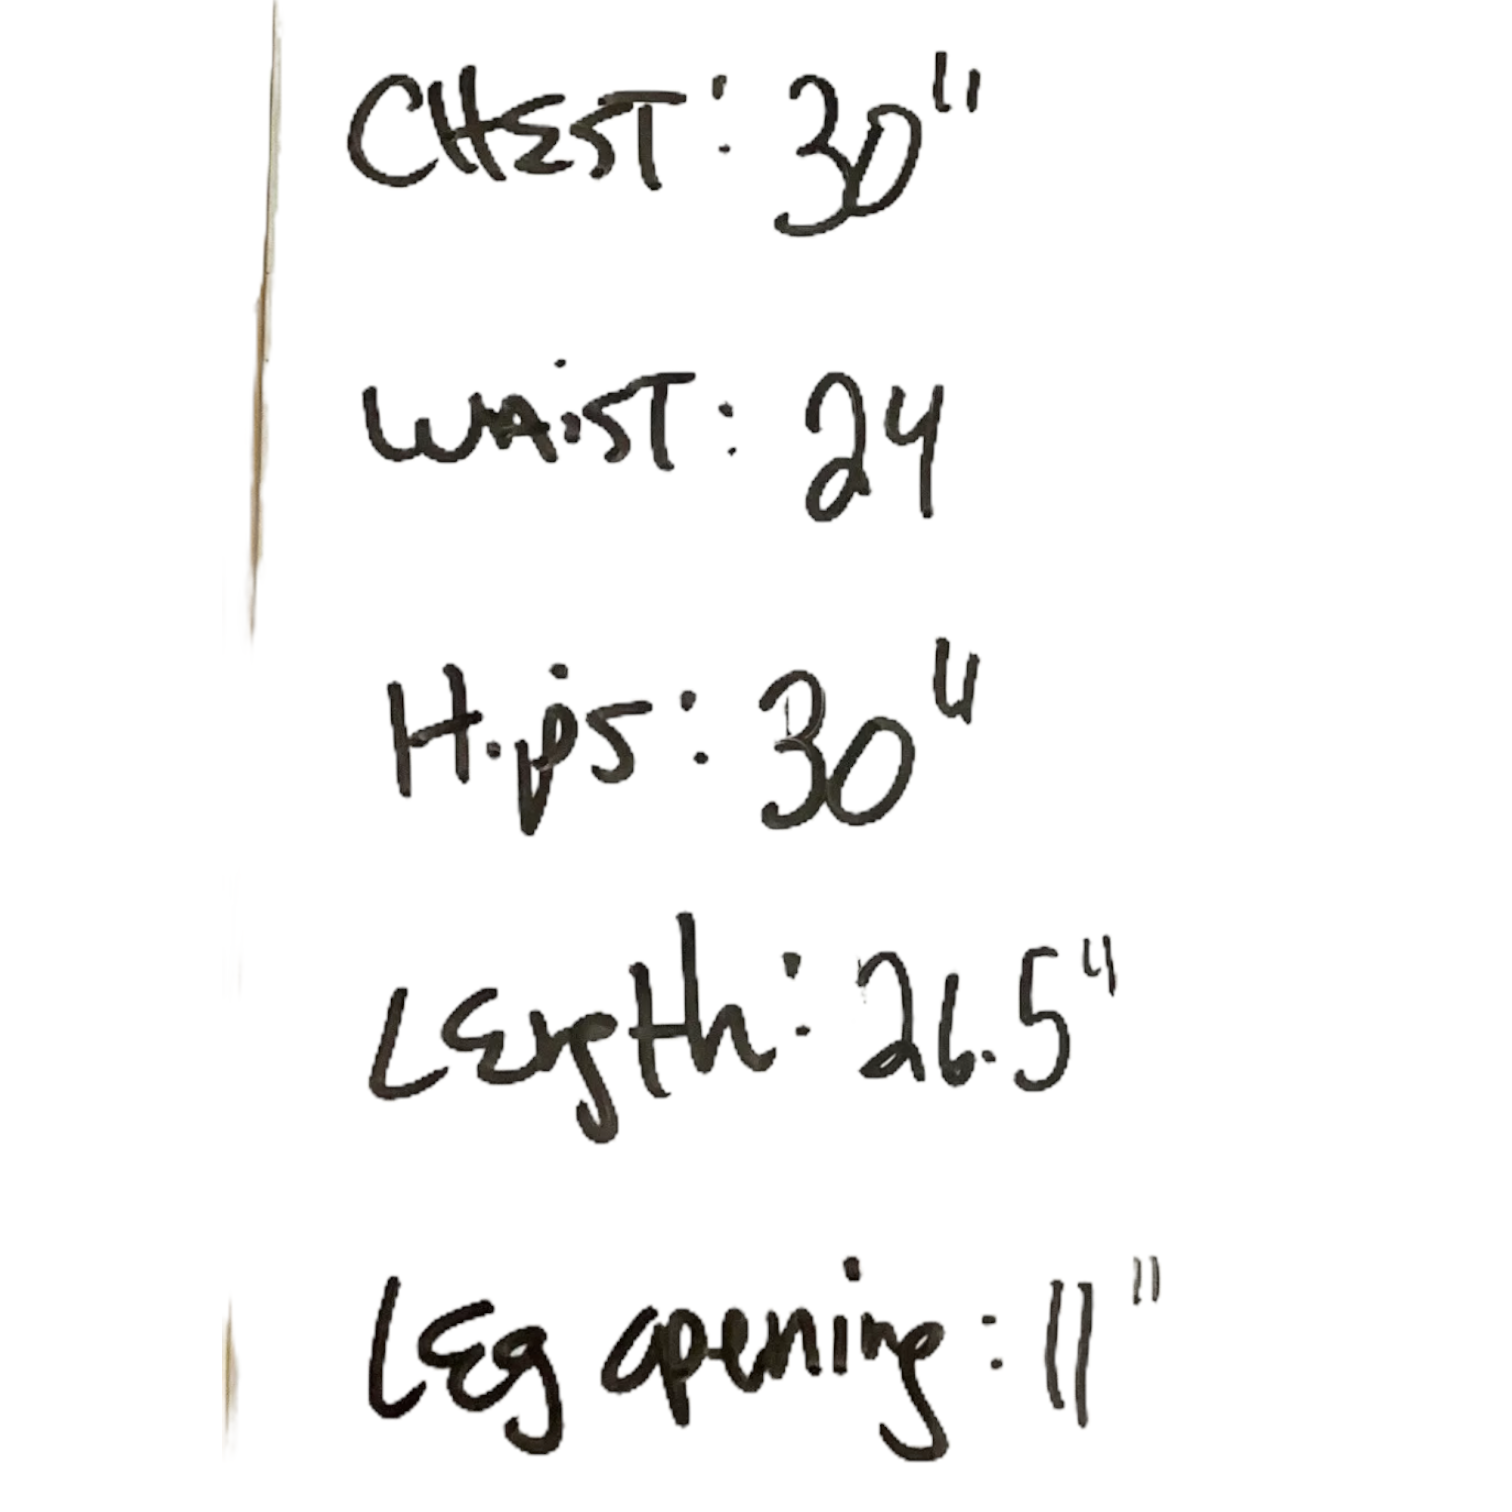 CHEST: 30"
WAiST: 24
Hips: 30"
LEngth: 26.5"
LEg opening: 11"